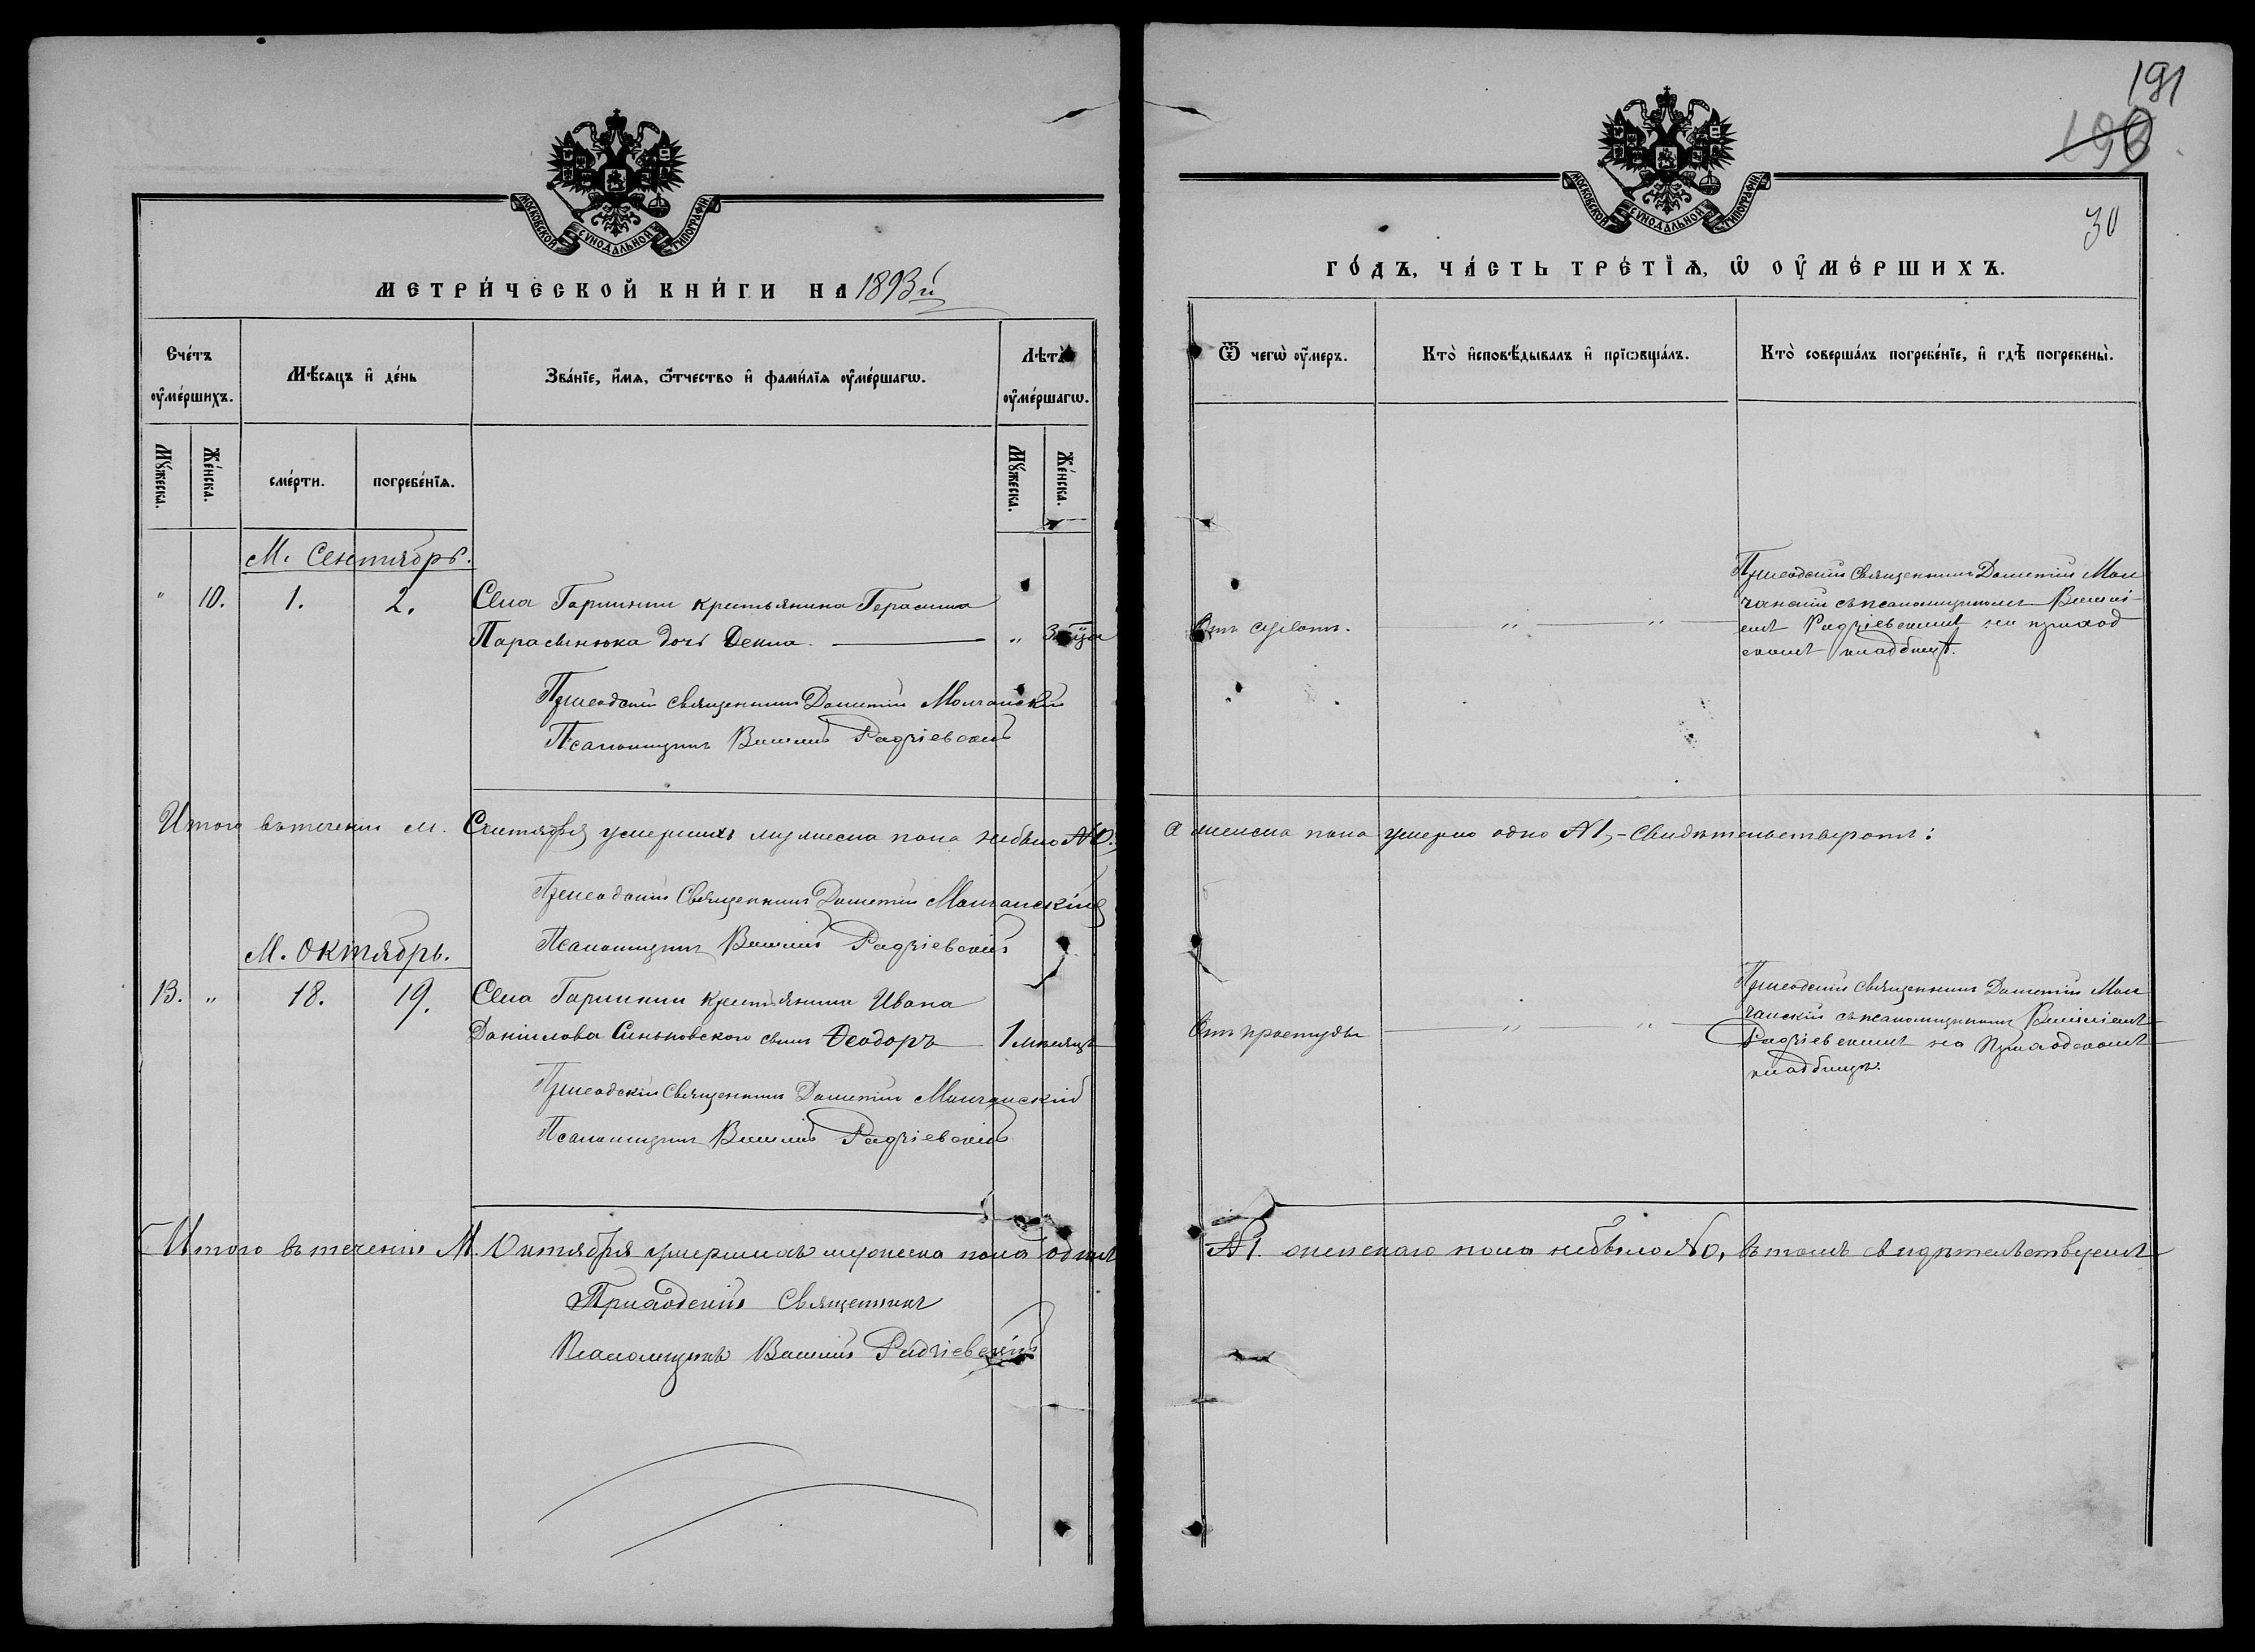 МОСКОВСКОЙ СѴНОДАЛЬНОЙ ТИПОГРАФІИ
МЕТРИ́ЧЕСКОЙ КНИ́ГИ НА 1893й
Сче́тъ оу҆ме́ршихъ.
Мѣ́сяцъ и҆ де́нь
Зва́нїе, и҆́мя, ѻ҆́тчество и҆ фами́лїя оу҆ме́ршагѡ.
Лѣ́та оу҆ме́ршагѡ.
Мꙋ́жеска.
Же́нска.
сме́рти.
погребе́нїя.
Мꙋ́жеска.
Же́нска.
М. Сентябрь.
" 10. 1. 2. Села Гармики крестьянина Герасима
Парасынюка дочь Ѳекла. "
Приходскій Священникъ Дометій Молчанскій
Псаломщикъ Василій Радзіевскій
Итого въ теченіи м. Сентября умершихъ мужеска пола небыло №0.
Приходскій Священникъ Дометій Молчанскій
Псаломщикъ Василій Радзіевскій
М. Октябрь.
13. " 18. 19. Села Гармики крестьянина Ивана
Даніилова Синьковского сынъ Ѳеодоръ 1 мѣсяцъ
Приходскій Священникъ Дометій Молчанскій
Псаломщикъ Василій Радзіевскій
Итого въ теченіи М. Октября умершихъ мужеска пола одинъ
Приходскій Священникъ
Псаломщикъ Василій Радзіевскій
191
190
30
МОСКОВСКОЙ СѴНОДАЛЬНОЙ ТИПОГРАФІИ
ГО́ДЪ, ЧА́СТЬ ТРЕ́ТЇЯ, Ѡ҆ ОУ҆МЕ́РШИХЪ.
Ѿ чегѡ̀ оу҆́меръ.
Кто̀ и҆сповѣ́дывалъ и҆ прїѡбща́лъ.
Кто̀ соверша́лъ погребе́нїе, и҆ гдѣ̀ погребены̀.
Отъ " " Приходскій Священникъ Дометій Мол
чанскій съ псаломщикомъ Василі-
емъ Радзіевскимъ на приход
скомъ кладбищѣ.
а женска пола умерло одно №1, - Свидѣтельствуютъ:
Отъ простуды " " Приходскій Священникъ Дометій Мол
чанскій съ псаломщикомъ Василіемъ
Радзіевскимъ на Приходскомъ
кладбищѣ.
№1. женскаго пола небыло №0, въ томъ свидѣтельствуемъ